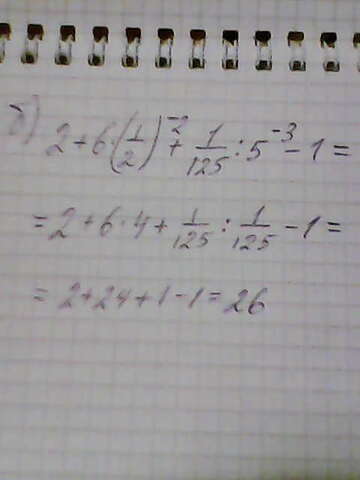 б) 2+6·(1/2)^-2 + 1/125 : 5^-3 - 1 =
= 2+6·4 + 1/125 : 1/125 - 1 =
= 2+24+1-1=26